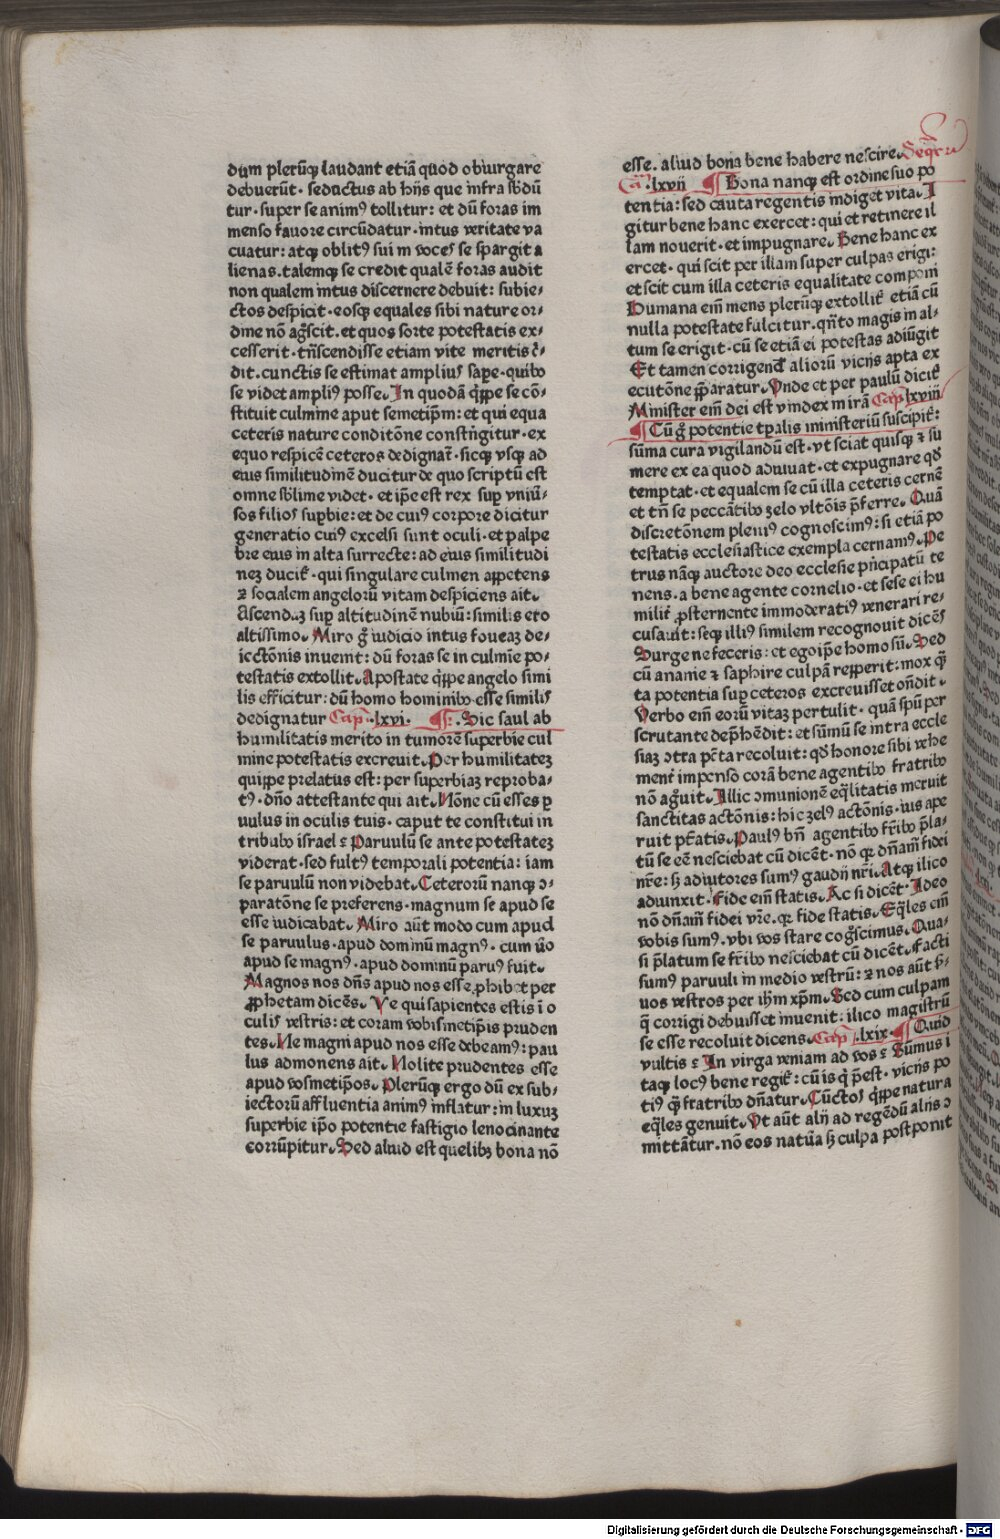 dum plerūqꝫ laudant etiā quod obiurgare
debuerūt · seductus ab hijs que infra sb̄dū
tur · super se animꝰ tollitur: et dū foras im
menso fauore circūdatur · intus veritate va
cuatur: atqꝫ oblitꝰ sui in voces se spargit a
lienas. talemqꝫ se credit qualē foras audit
non qualem intus discernere debuit: subie⸗
ctos despicit · eosqꝫ equales sibi nature or⸗
dine nō ag̃scit. et quos sorte potestatis ex⸗
cesserit · tn̄scendisse etiam vite meritis c̄⸗
dit. cunctis se estimat amplius sape · quibꝰ
se videt ampliꝰ posse. In quodā q̄ppe se cō⸗
stituit culmine aput semetip̄m: et qui equa
ceteris nature conditōne cōstringitur · ex
equo respicē ceteros dedignat̄ · sicqꝫ vsqꝫ ad
eius similitudinē ducitur de quo scriptū est
omne sb̄lime videt · et ip̄e est rex sup̱ vniū⸗
sos filios sup̱bie: et de cuiꝰ corpore dicitur
generatio cuiꝰ excelsi sunt oculi · et palpe
bre eius in alta surrecte: ad eius similitudi
neꝫ ducit̄ · qui singulare culmen appetens
⁊ socialem angelorū vitam despiciens ait.
Ascendaꝫ sup̱ altitudinē nubiū: similis ero
altissimo. Miro g̊ iudicio intus foueaꝫ de⸗
iectōnis inuenit: dū foras se in culmīe po⸗
testatis extollit. Apostate q̄ppe angelo simi
lis efficitur: dū homo hominibꝰ esse similis
dedignatur Cap̄ · lxvi · ¶ Sic saul ab
humilitatis merito in tumorē superbie cul
mine potestatis excreuit. Per humilitateꝫ
quippe prelatus est: per superbiaꝫ reproba⸗
tꝰ · dn̄o attestante qui ait. Nōne cū esses ꝑ
uulus in oculis tuis · caput te constitui in
tribubꝰ israel ⁊ Paruulū se ante potestateꝫ
viderat · sed fultꝰ temporali potentia: iam
se paruulū non videbat. Ceterorū nanqꝫ ɔ⸗
paratōne se preferens · magnum se apud se
esse iudicabat. Miro aūt modo cum apud
se paruulus · apud dominū magnꝰ · cum v̊o
apud se magnꝰ · apud dominū paruꝰ fuit.
Magnos nos dn̄s apud nos esse ꝓhibet per
ꝓphetam dicēs. Ve qui sapientes estis ī o
culis vestris: et coram vobismetip̄is pruden
tes. Ne magni apud nos esse debeamꝰ: pau
lus admonens ait. Nolite prudentes esse
apud vosmetip̄os. Plerūqꝫ ergo dū ex sub⸗
iectorū affluentia animꝰ inflatur: in luxuꝫ
superbie ip̄o potentie fastigio lenocinante
corrūpitur. Sed aliud est quelibꝫ bona nō
esse. aliud bona bene habere nescire.
lxvij ¶ Bona nanqꝫ est ordine suo po
tentia: sed cauta regentis indiget vita. I
gitur bene hanc exercet: qui et retinere il
lam nouerit · et impugnare. Bene hanc ex
ercet · qui scit per illam super culpas erigi:
et scit cum illa ceteris equalitate componi
Humana em̄ mens plerūqꝫ extollit̄ etiā cū
nulla potestate fulcitur. qn̄to magis in al⸗
tum se erigit · cū se etiā ei potestas adiūgit
Et tamen corrigend̄ aliorū vicijs apta ex
ecutōne p̄paratur. Vnde et per paulū dicit̄
Minister em̄ dei est vindex in irā Cap̄ lxviij
¶ Cū g̊ potentie tp̱alis ministeriū suscipit̄:
sūma cura vigilandū est · vt sciat quisqꝫ ⁊ su
mere ex ea quod adiuuat · et expugnare qd̄
temptat · et equalem se cū illa ceteris cernē
et tn̄ se peccātibꝰ zelo vltōis p̄ferre. Quā
discretōnem pleniꝰ cognoscimꝰ: si etiā po
testatis ecclesiastice exempla cernamꝰ. Pe
trus nāqꝫ auctore deo ecclesie pn̄cipatū te
nens · a bene agente cornelio · et sese ei hu
milit̄ ꝓsternente immoderatiꝰ venerari re⸗
cusauit: seqꝫ illiꝰ similem recognouit dicēs
Surge ne feceris: et ego ip̄e homo sū. Sed
cū ananie ⁊ saphire culpā rep̱perit: mox q̄
ta potentia sup̱ ceteros excreuisset on̄dit.
Verbo em̄ eorū vitaꝫ pertulit · quā spū per
scrutante dep̄hēdit: et sūmū se intra eccle
siaꝫ ɔtra pc̄ta recoluit: qd̄ honore sibi vehe
ment̄ impenso corā bene agentibꝰ fratribꝰ
nō ag̊uit. Illic ɔmunionē eq̄litatis meruit
sanctitas actōnis: hic zelꝰ actōnis · ius ape
ruit ptātis. Paulꝰ bn̄ agentibꝰ fr̄ibꝰ p̄la⸗
tū se eē nesciebat cū dicēt · nō qꝛ dn̄am̄ fidei
nr̄e: sꝫ adiutores sumꝰ gaudij nr̄i. Atqꝫ ilico
adiunxit · Fide em̄ statis. Ac si dicēt · Ideo
nō dn̄am̄ fidei vr̄e. qꝛ fide statis. Eq̄les em̄
vobis sumꝰ. vbi vos stare cog̊scimus. Qua⸗
si p̄latum se fr̄ibꝰ nesciebat cū dicēt. Facti
sumꝰ paruuli in medio vestrū: ⁊ nos aūt ẜ⸗
uos vestros per ih̄m xp̄m. Sed cum culpam
q̄ corrigi debuisset inuenit: ilico magistrū
se esse recoluit dicens. Cap̄ · lxix · ¶ Quid
vultis ⁊ In virga veniam ad vos ⁊ Sūmus i
taqꝫ locꝰ bene regit̄: cū is q̄ p̄est · vicijs po
tiꝰ q̄ fratribꝰ dn̄atur. Cūctos q̄ppe natura
eq̄les genuit. Vt aūt alij ad regēdū alijs ɔ
mittātur. nō eos natūa sꝫ culpa postponit
Digitalisierung gefördert durch die Deutsche Forschungsgemeinschaft · DFG